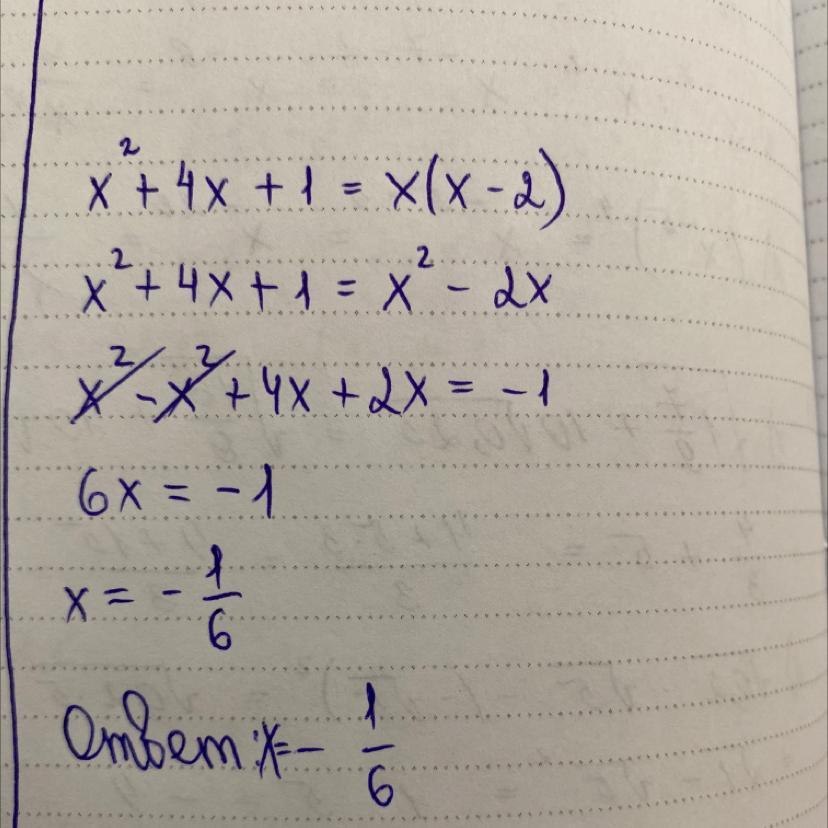 x² + 4x + 1 = x(x - 2)
x² + 4x + 1 = x² - 2x
x² - x² + 4x + 2x = -1
6x = -1
x = - 1/6
Ответ: x = - 1/6